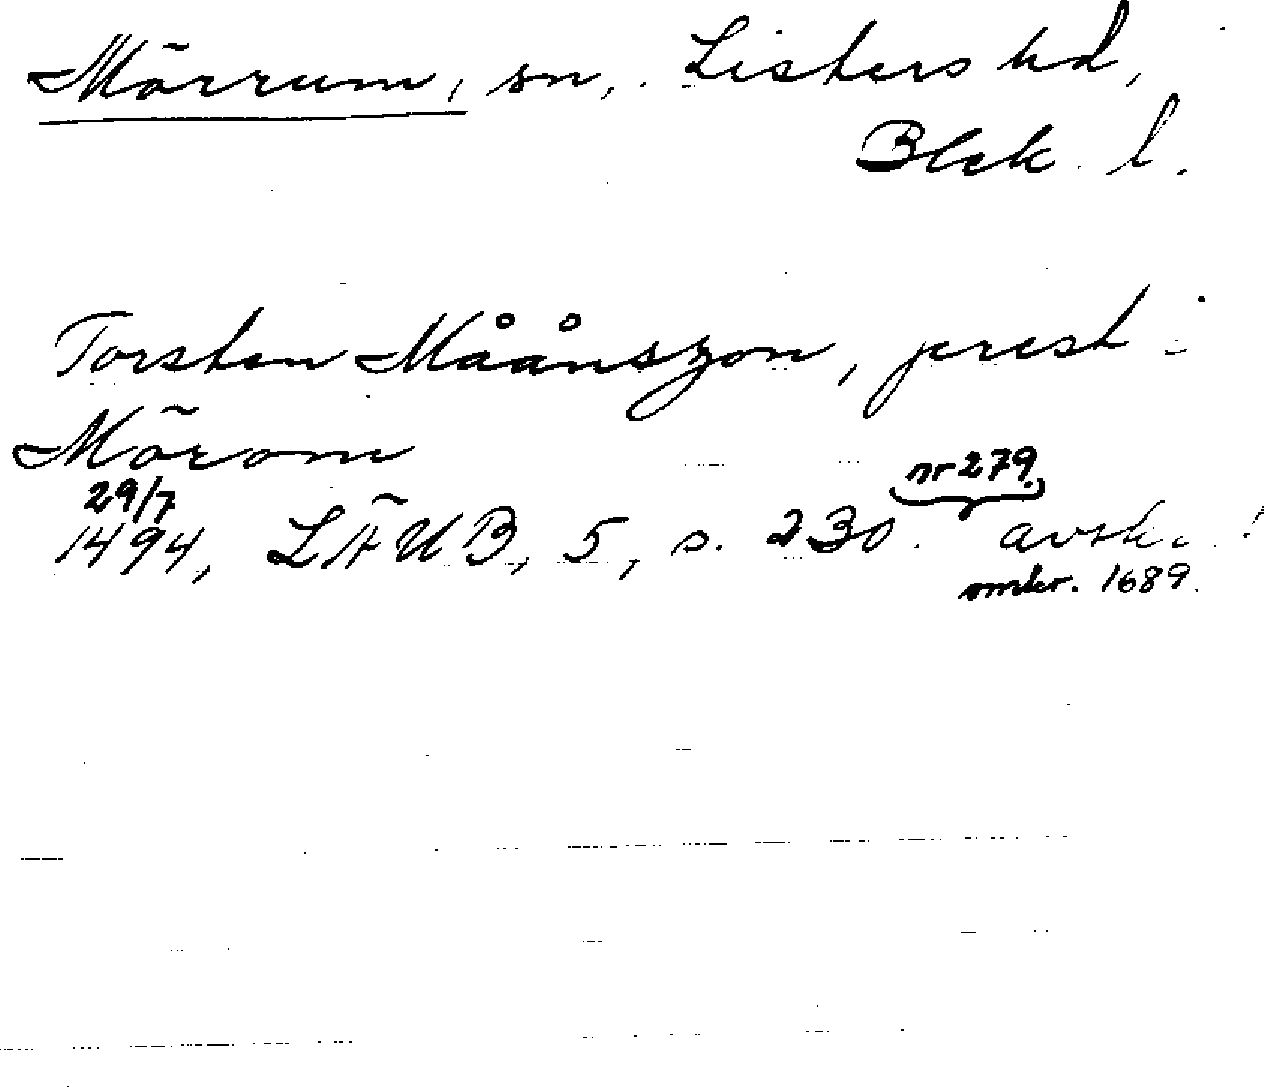 Mörrum, sn, Listers hd,
Blek. l.
Torsten Måånszon, prest i
Mörom
29/7 nr 279.
1494, LÄUB, 5, s. 230. avskr.!
omkr. 1689.